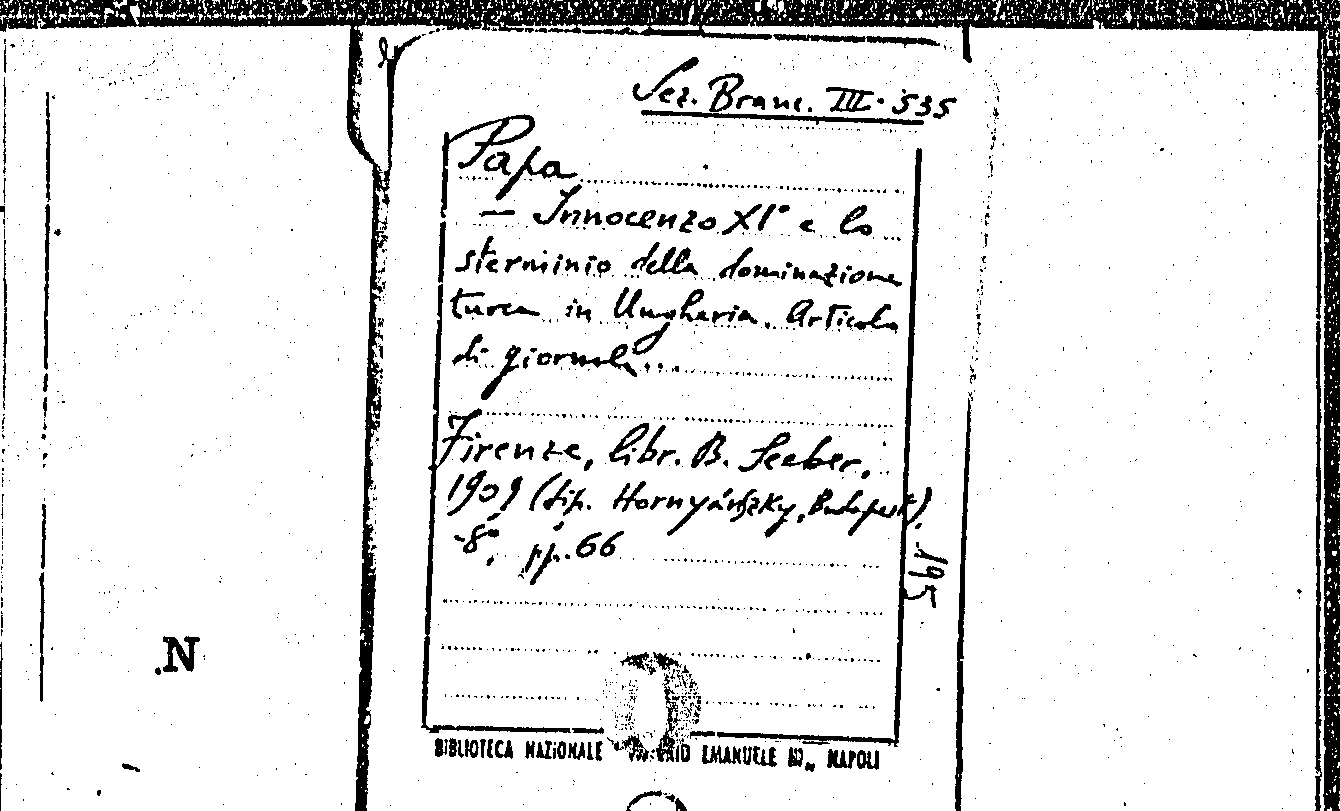 Sez. Branc. III. 535
Papa
— Innocenzo XI° e lo
sterminio della dominazione
turca in Ungheria. Articolo
di giornale...
Firenze, libr. B. Seeber,
1909 (tip. Hornyánszky, Budapest).
-8°, pp. 66
195
N
BIBLIOTECA NAZIONALE EMANUELE III„ NAPOLI